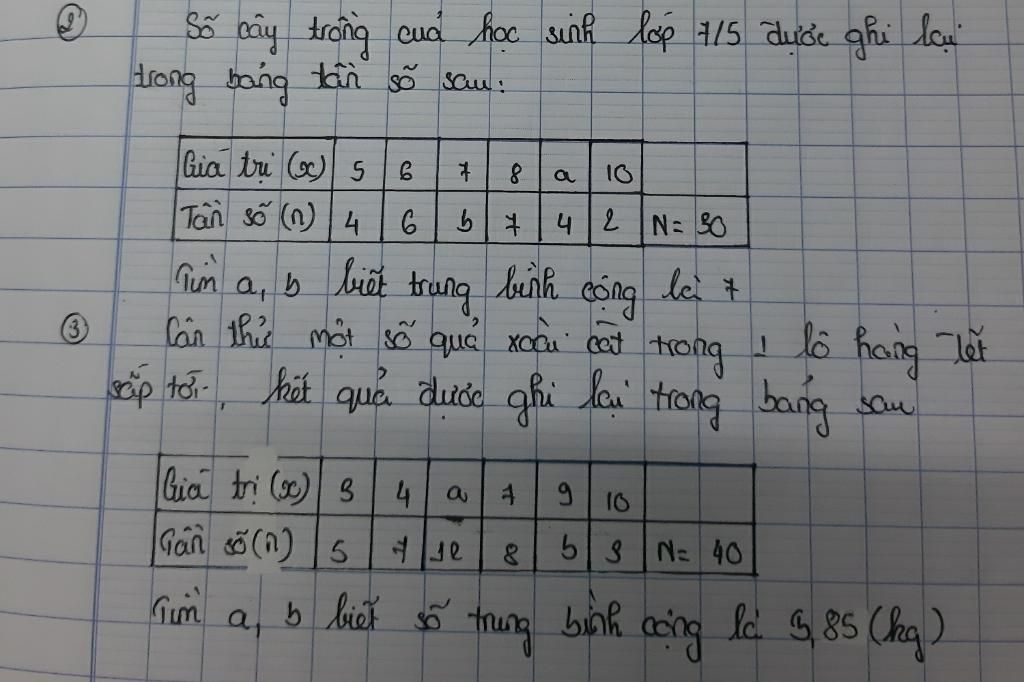 ② Số cây trồng của học sinh lớp 7/5 được ghi lại
trong bảng tần số sau:
Giá trị (x) 5 6 7 8 a 10
Tần số (n) 4 6 b 7 4 2 N= 30
Tìm a, b biết trung bình cộng là 7
③ Cân thử một số quả xoài cát trong 1 lô hàng Tết
sắp tới, kết quả được ghi lại trong bảng sau
Giá trị (x) 3 4 a 7 9 10
Tần số (n) 5 7 12 8 b 3 N= 40
Tìm a, b biết số trung bình cộng là 5,85 (kg)